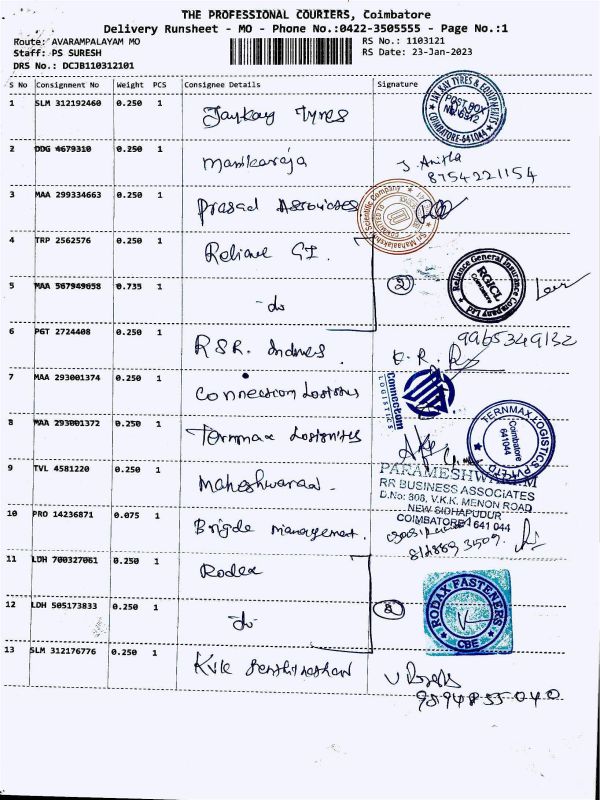 THE PROFESSIONAL COURIERS, Coimbatore
Delivery Runsheet - MO - Phone No.:0422-3505555 - Page No.:1
Route: AVARAMPALAYAM MO
RS No.: 1103121
Staff: PS SURESH
RS Date: 23-Jan-2023
DRS No.: DCJB110312101
S No Consignment No Weight PCS Consignee Details Signature
1 SLM 312192460 0.250 1 Jaykay Tyres
JAY KAY TYRES & EQUIPMENTS
POST BOX
COIMBATORE-641044
2 DDG 4679310 0.250 1 Manikaraja
J. Anitha
8754221154
3 MAA 299334663 0.250 1 Prasad Associates
Sri Mahaalakshmi Scientific Company
4 TRP 2562576 0.250 1 Reliance GI.
5 MAA 567949058 0.735 1 -do
2
Reliance General Insurance Company Ltd
RGICL
Coimbatore
6 PGT 2724408 0.250 1 RSR. Indnes
9965349132
7 MAA 293001374 0.250 1 Connectcom Logistics
Connectcom
LOGISTICS
8 MAA 293001372 0.250 1 Ternmax Logistics
TERNMAX LOGISTICS PVT LTD
Coimbatore
641044
9 TVL 4581220 0.250 1 Maheshwaran
PARAMESHWARAM
RR BUSINESS ASSOCIATES
D.No: 308, V.K.K. MENON ROAD
NEW SIDHAPUDUR
COIMBATORE 641 044
10 PRO 14236871 0.075 1 Brigde management.
11 LDH 700327061 0.250 1 Rodex
12 LDH 505173833 0.250 1 do
2
RODAX FASTENERS
CBE
13 SLM 312176776 0.250 1 Kvk
9894855040